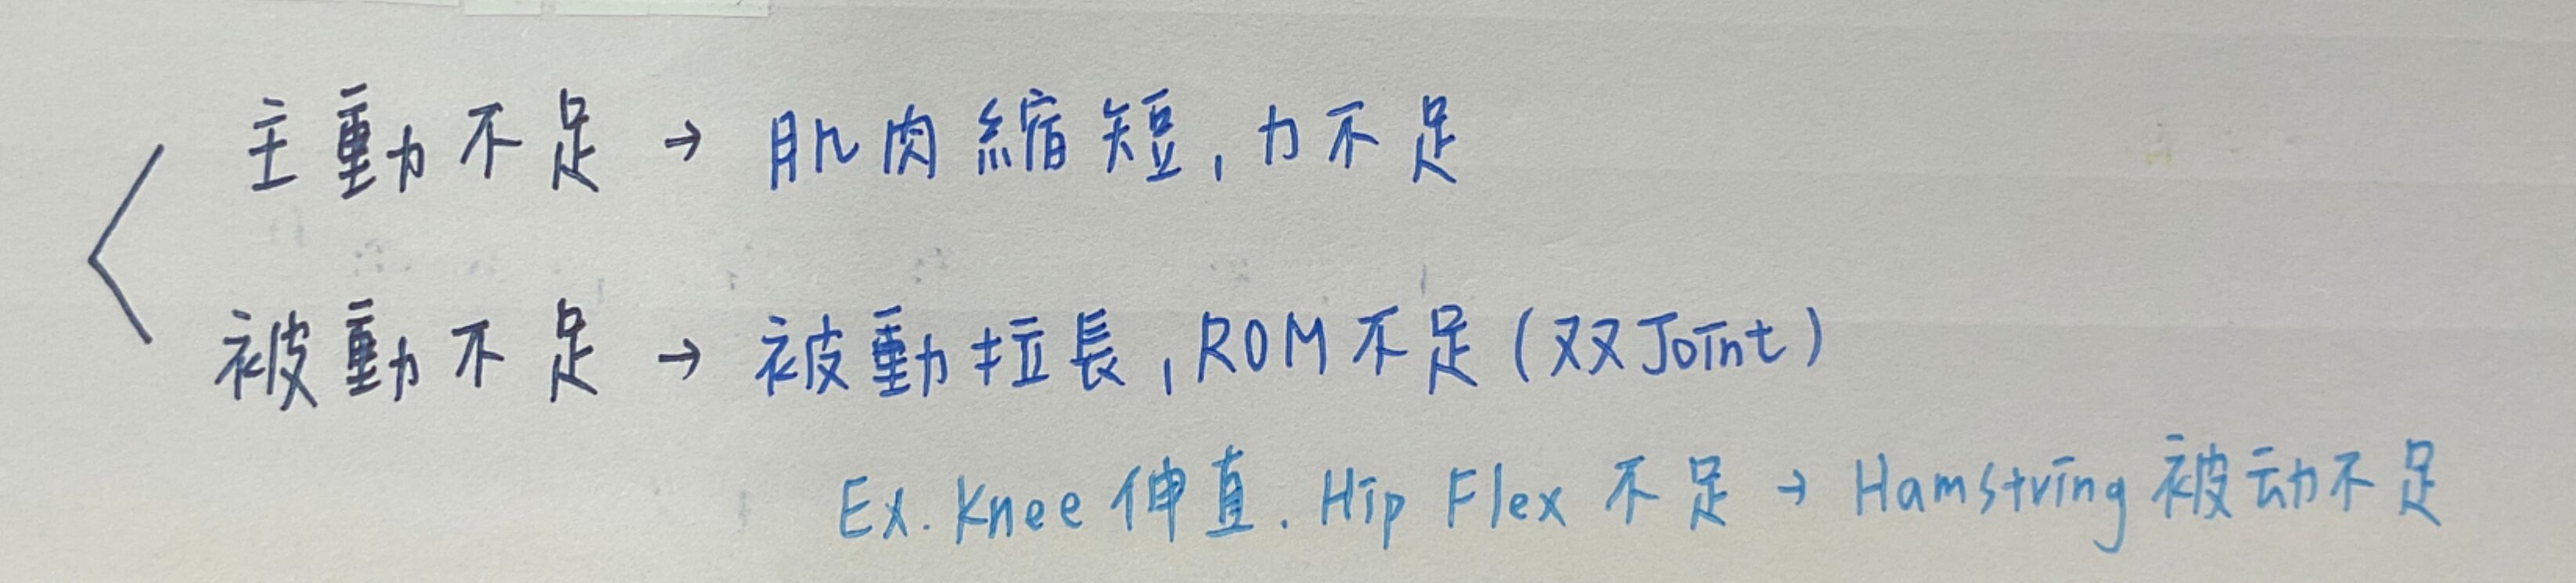 主動不足 → 肌肉縮短, 力不足
被動不足 → 被動拉長, ROM不足(双Joint)
Ex. Knee 伸直. Hip Flex 不足 → Hamstring 被动不足